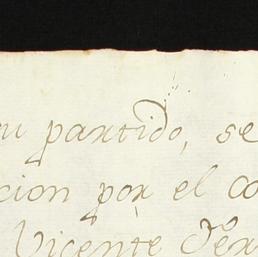 su partido, se
cion por el co
Vicente Fer